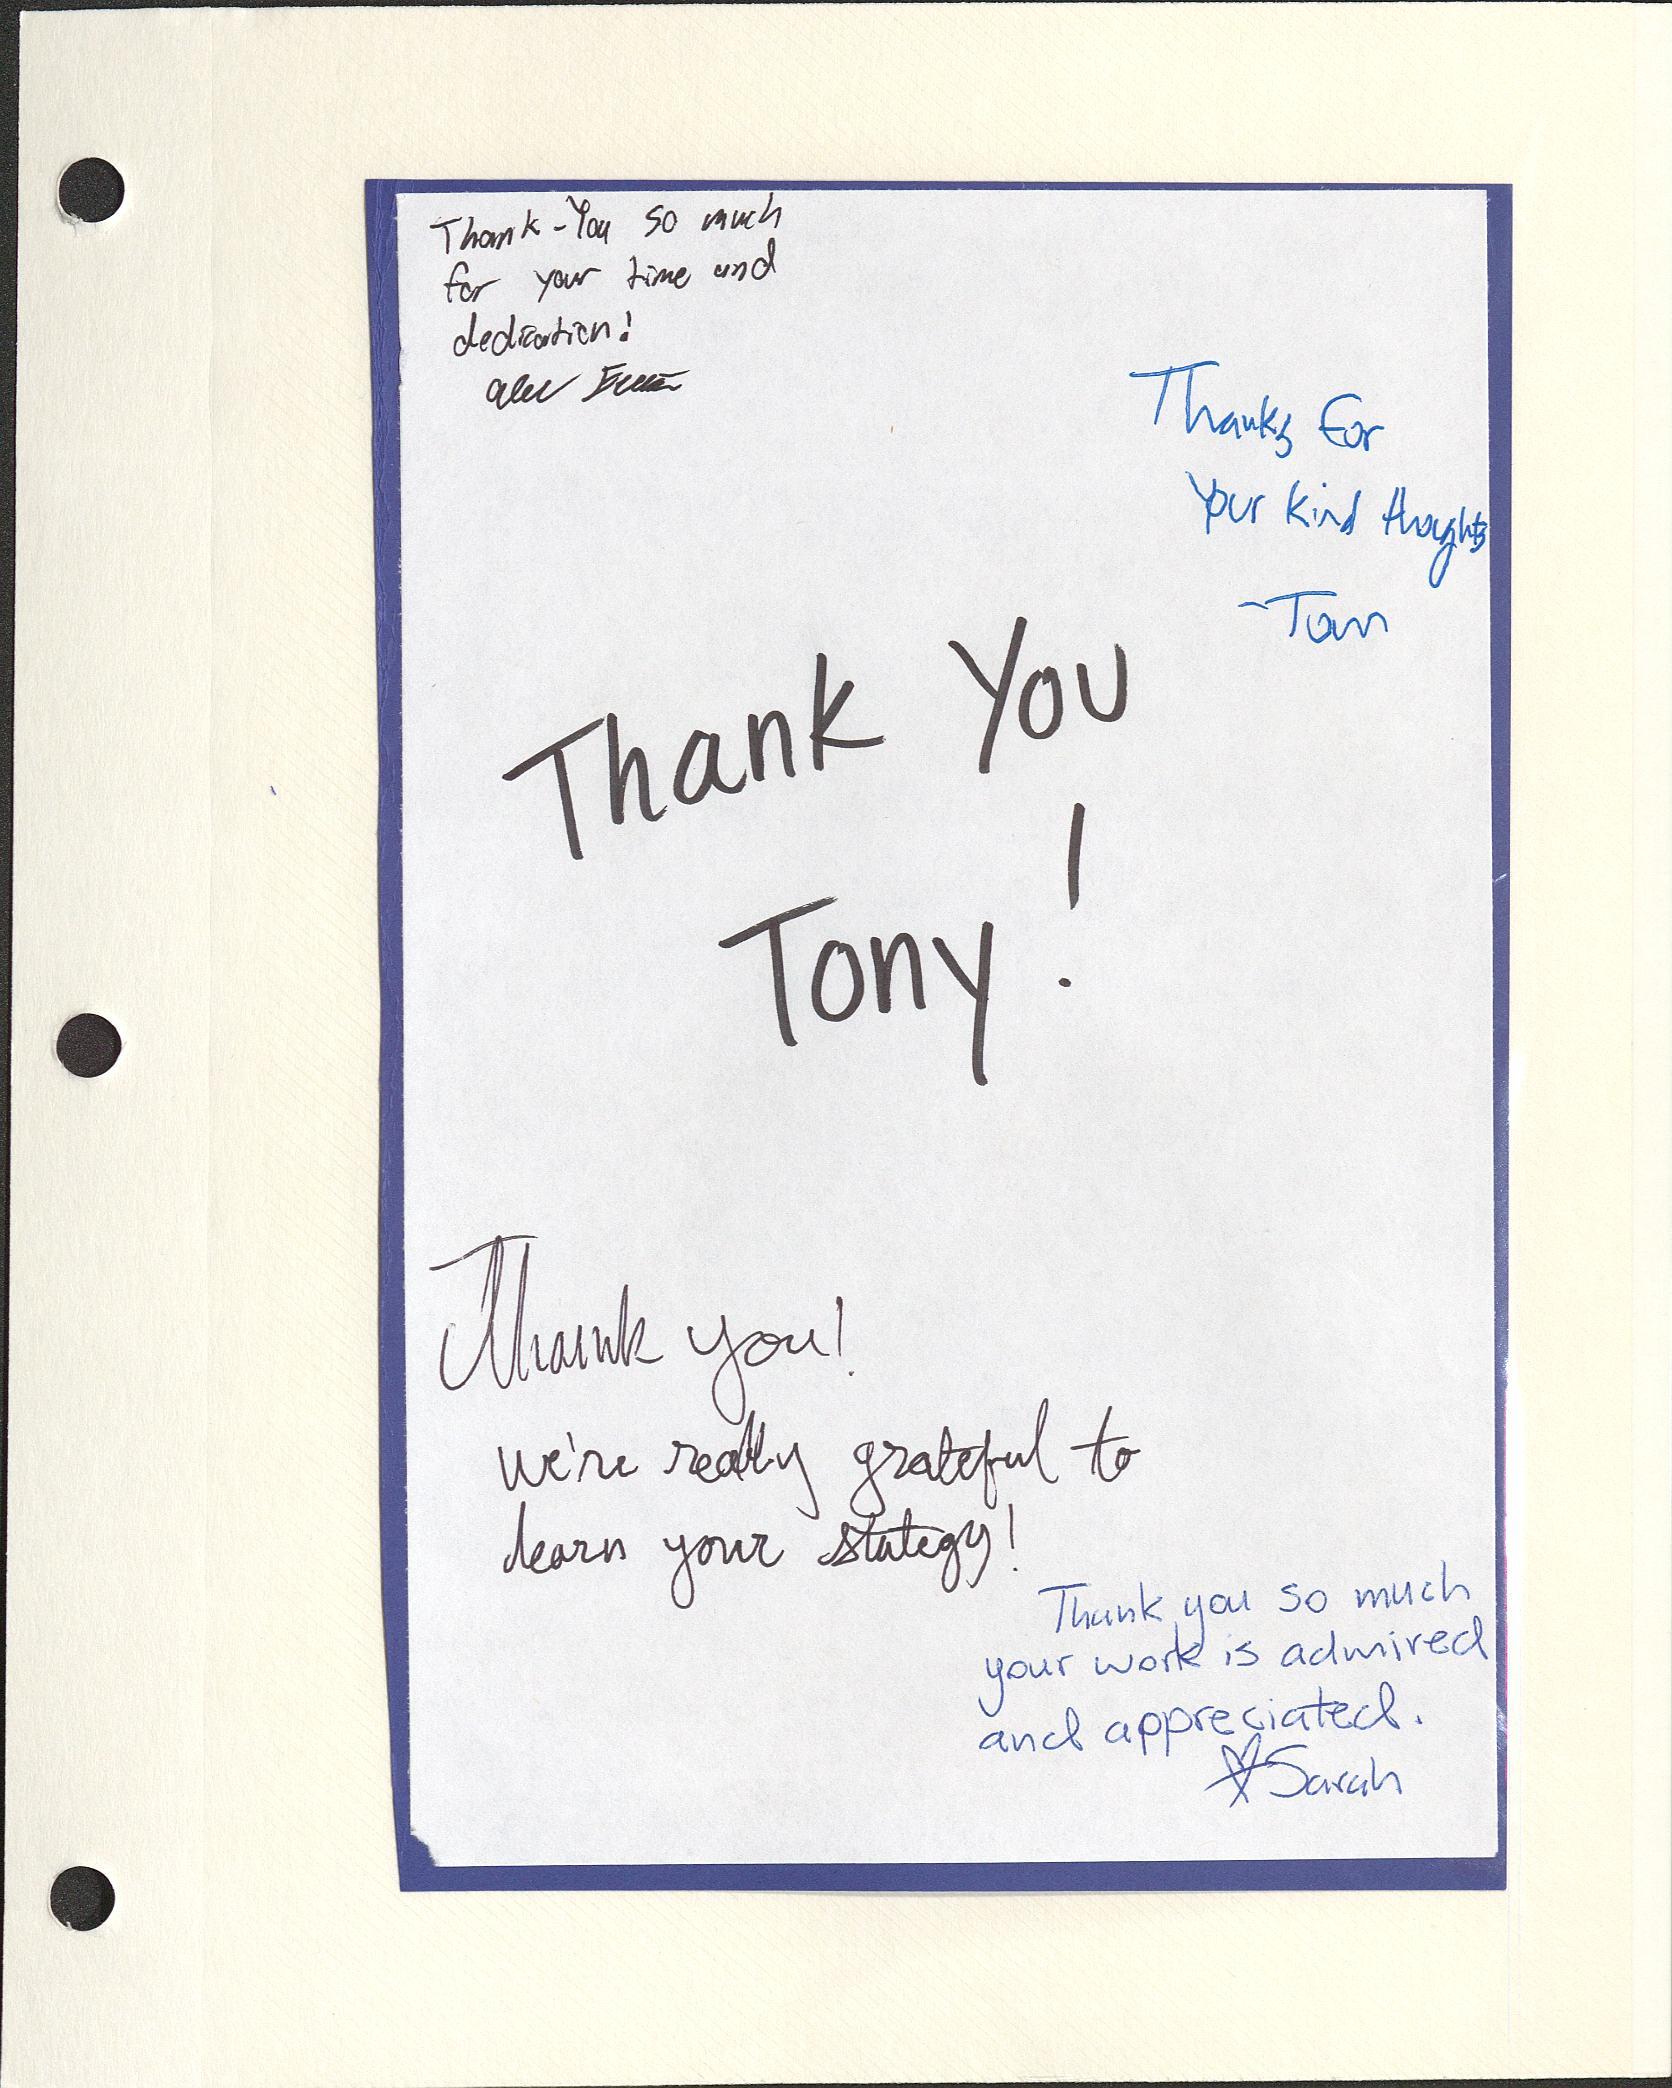 Thank-You so much
for your time and
dedication!
alec
Thanks for
Your kind thoughts
-Tom
Thank You
Tony!
Thank you!
we're really grateful to
learn your stategy!
Thank you so much
your work is admired
and appreciated.
Sarah